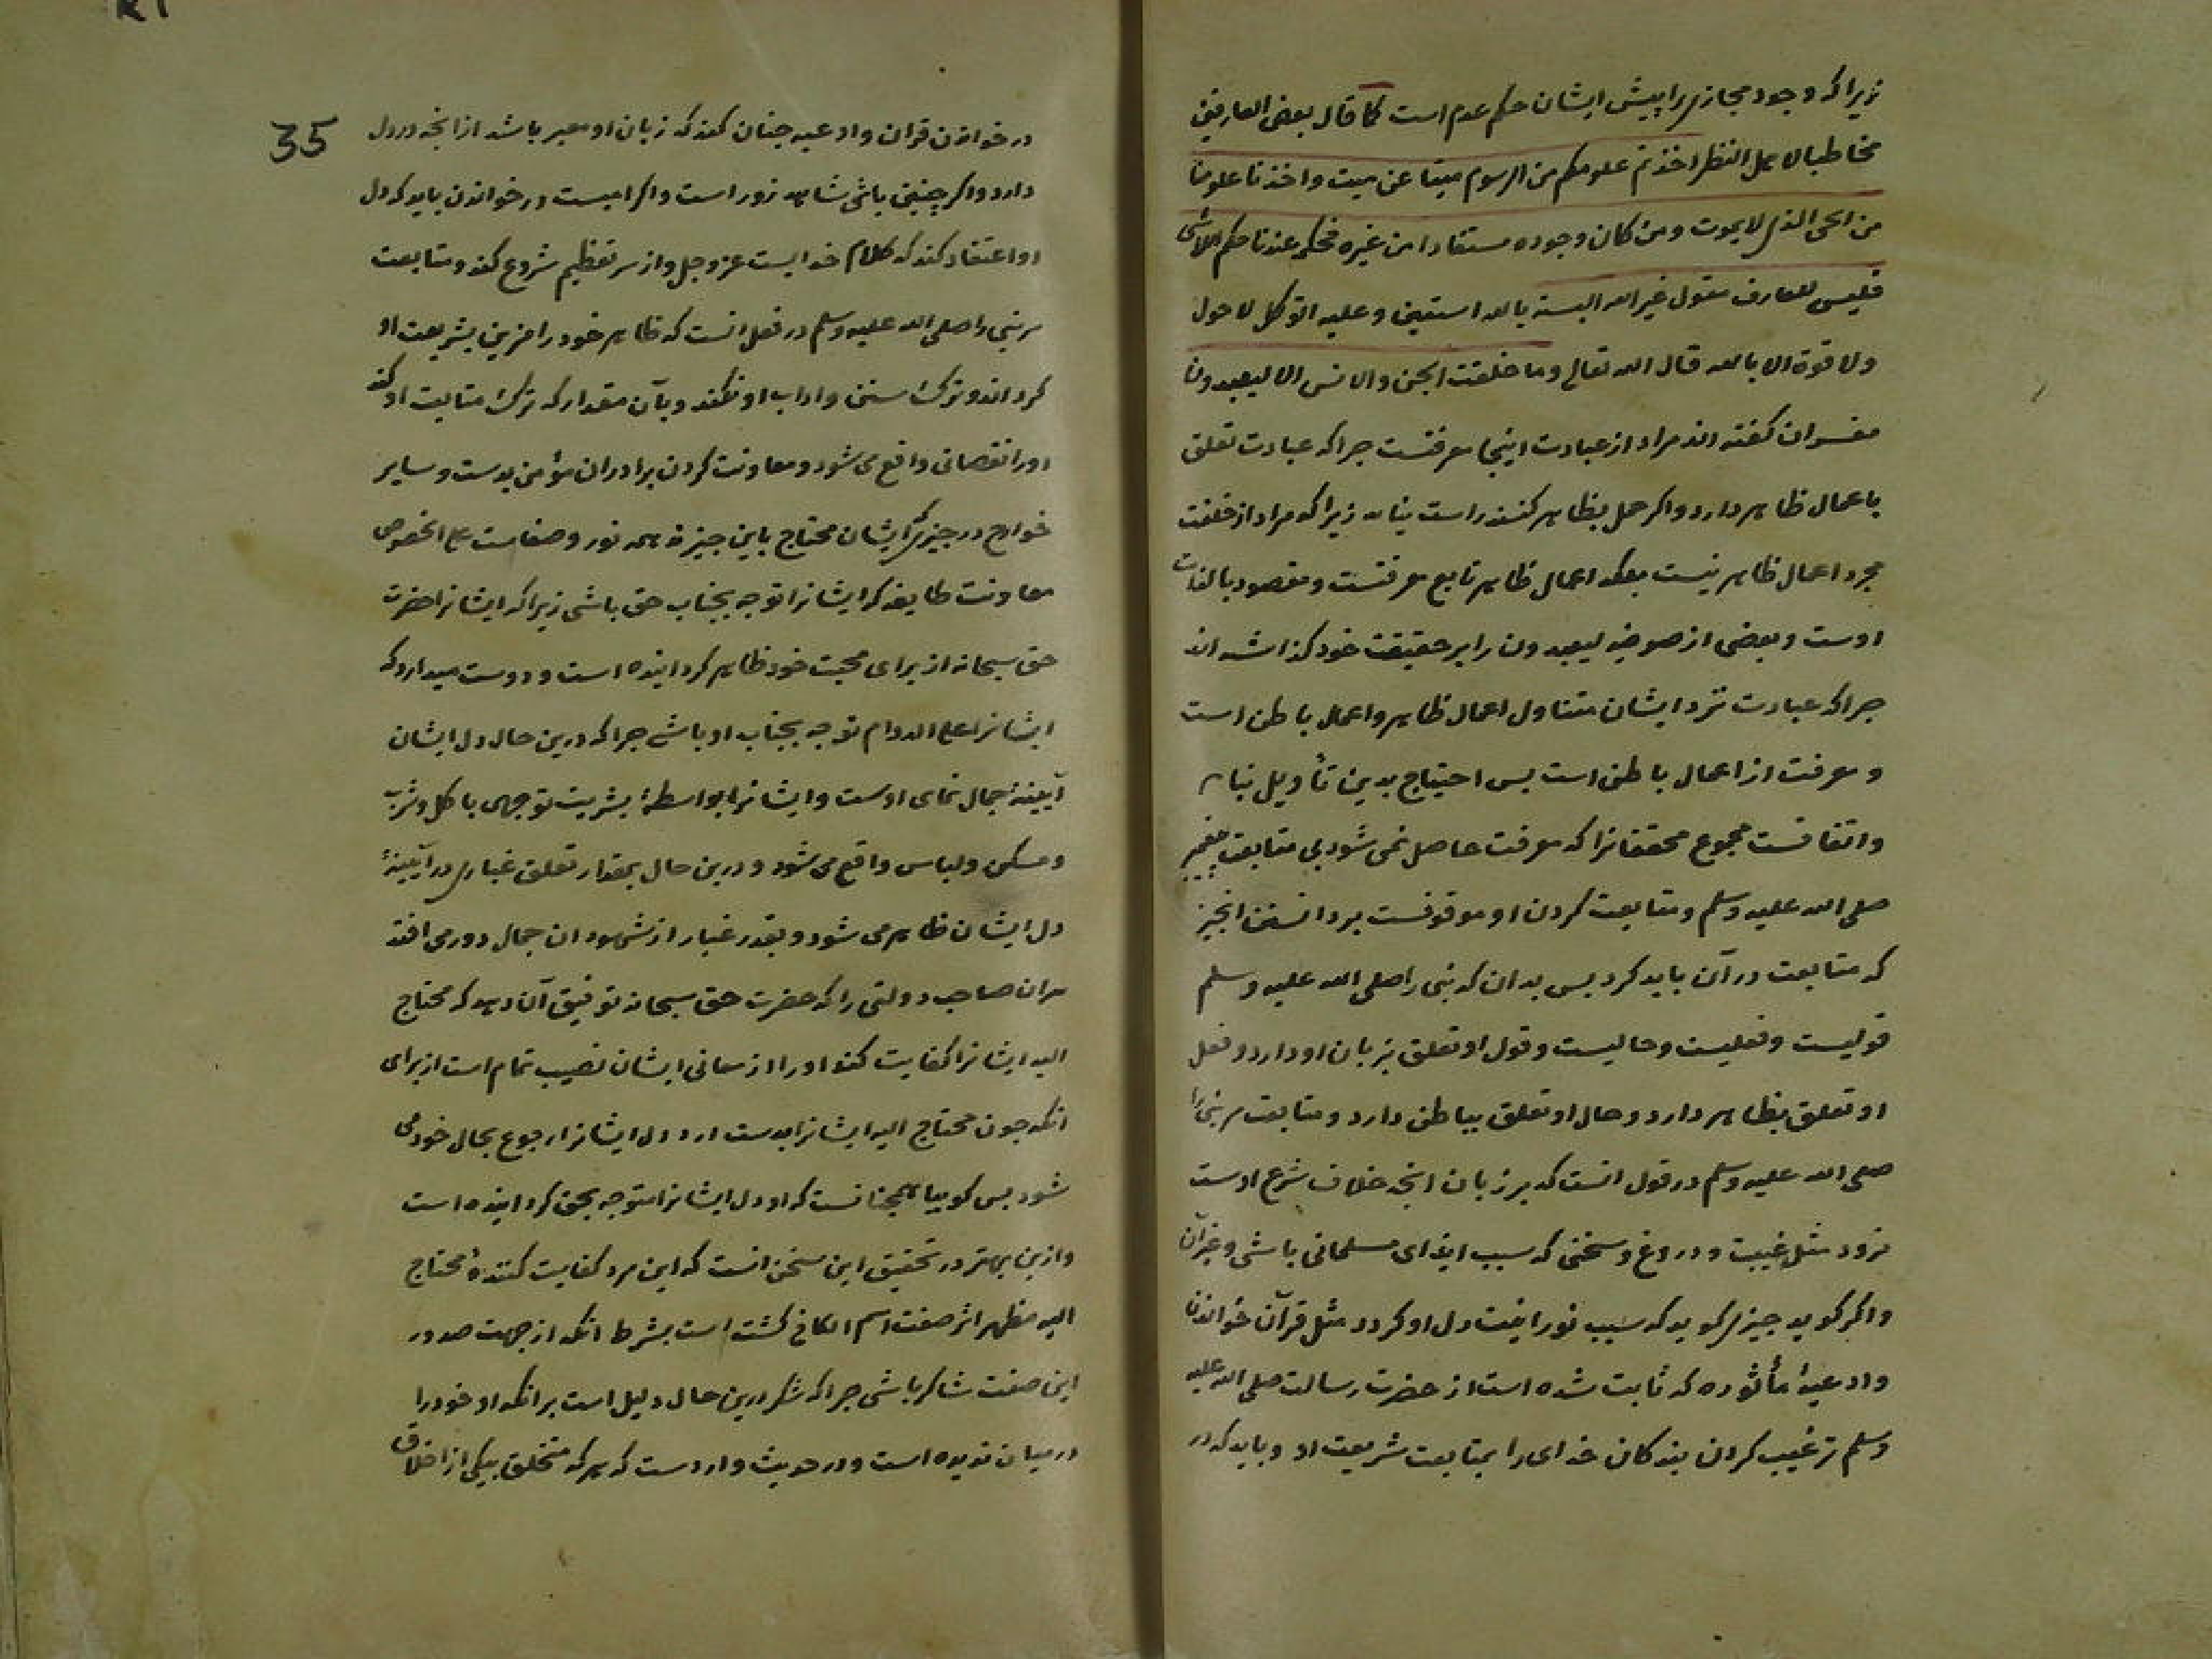 زیرا که وجود مجازی را پیش ایشان حکم عدم است کما قال بعض العارفین
مخاطبا لاهل النظر اخذتم علومکم من الرسوم میتا عن میت واخذنا علومنا
من الحی الذی لا یموت ومن کان وجوده مستفادا من غیره فحکمه عندنا حکم اللاشی
فلیس للعارف معول غیر الله البتة بالله استعین و علیه التوکل لا حول
ولا قوة الا بالله قال الله تعالی وما خلقت الجن والانس الا لیعبدون
مفسران کفته اند مراد از عبادت اینجا معرفتست جراکه عبادت تعلق
باعمال ظاهر دارد واکر حمل بظاهر کنند راست نیاید زیرا که مراد از خلقت
مجرد اعمال ظاهر نیست بلکه اعمال ظاهر تابع معرفتست ومقصود بالذات
اوست وبعضی از صوفیه لیعبدون را بر حقیقت خود کذاشته اند
جراکه عبادت نزد ایشان متناول اعمال ظاهر واعمال باطن است
و معرفت از اعمال باطن است بس احتیاج بدین تأویل نباشد
واتفاقست مجموع محققانرا که معرفت حاصل نمی شود بی متابعت پیغمبر
صلی الله علیه وسلم ومتابعت کردن او موقوفست بر دانستن انجیز
که متابعت در آن باید کرد بس بدان که نبی را صلی الله علیه وسلم
قولیست وفعلیست وحالیست وقول او تعلق بزبان او دارد وفعل
او تعلق بظاهر دارد وحال او تعلق بباطن دارد ومتابعت مر نبی را
صلی الله علیه وسلم در قول انست که بر زبان انجه خلاف شرع اوست
نرود مثل غیبت ودروغ وسخنی که سبب ایذای مسلمانی باشی وغیر آن
واکر کوید جیزی کوید که سبب نورانیت دل او کردد مثل قرآن خواندن
وادعیهٔ مأثوره که ثابت شده است از حضرت رسالت صلی الله علیه
وسلم ترغیب کردن بندکان خدای را بمتابعت شریعت او وباید که در
35
در خواندن قران وادعیه جنان کند که زبان او معبر باشد از انجه در دل
دارد واکر چنین باشی شاهد زور است واکرامیست در خواندن باید که دل
او اعتقاد کند که کلام خدایست عز وجل واز سر تعظیم شروع کند ومتابعت
مر نبی را صلی الله علیه وسلم در فعل انست که ظاهر خود را مزین بشریعت او
کرداند وترک سنن واداب او نکند وبآن مقدار که ترک متابعت او کند
اورا نقصانی واقع می شود ومعاونت کردن برادران مؤمن بدست وسایر
جوارح در جیزی که ایشان محتاج باین جیزند همه نور وصفاست علی الخصوص
معاونت طایفه که ایشانرا توجه بجناب حق باشی زیرا که ایشانرا حضرت
حق سبحانه از برای محبت خود ظاهر کردانیده است ودوست میدارد که
ایشانرا علی الدوام توجه بجناب او باشی جراکه درین حال دل ایشان
آیینهٔ جمال نمای اوست وایشانرا بواسطهٔ بشریت توجهی باکل وشرب
ومسکن ولباس واقع می شود ودرین حال بمقدار تعلق غباری در آیینهٔ
دل ایشان ظاهر می شود وبقدر غبار از شهود ان جمال دور می افتد
هر ان صاحب دولتی را که حضرت حق سبحانه توفیق آن دهد که محتاج
الیه ایشانرا کفایت کند اورا از معانی ایشان نصیب تمام است از برای
انکه جون محتاج الیه ایشانرا بدست ارد دل ایشانرا رجوع بحال خود می
شود بس کوییا همجنانست که او دل ایشانرا متوجه بحق کردانیده است
وازین بهتر در تحقیق این سخن انست که این مرد کفایت کنندهٔ محتاج
الیه مظهر اثر صفت اسم الکافی کشته است بشرط انکه از جهت صدور
این صفت شاکر باشی جراکه شکر درین حال دلیل است بر انکه او خود را
در میان ندیده است ودر حدیث واردست که هر که متخلق بیکی از اخلاق